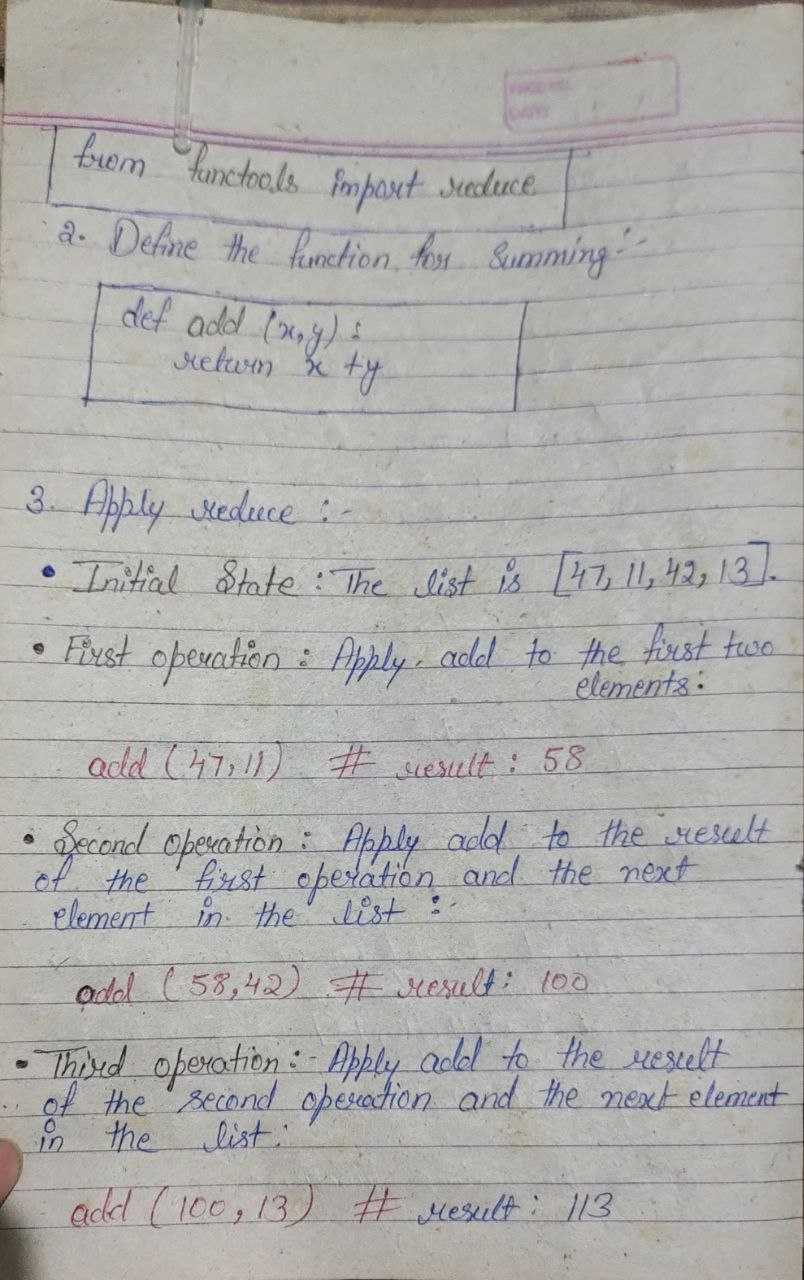 from functools import reduce
2. Define the function for summing :-
def add (x,y) :
return x + y
3. Apply reduce :-
• Initial State : The list is [47, 11, 42, 13].
• First operation : Apply add to the first two
elements :
add (47,11) # result : 58
• Second operation : Apply add to the result
of the first operation and the next
element in the list :-
add (58,42) # result : 100
• Third operation :- Apply add to the result
of the second operation and the next element
in the list :
add (100,13) # result : 113